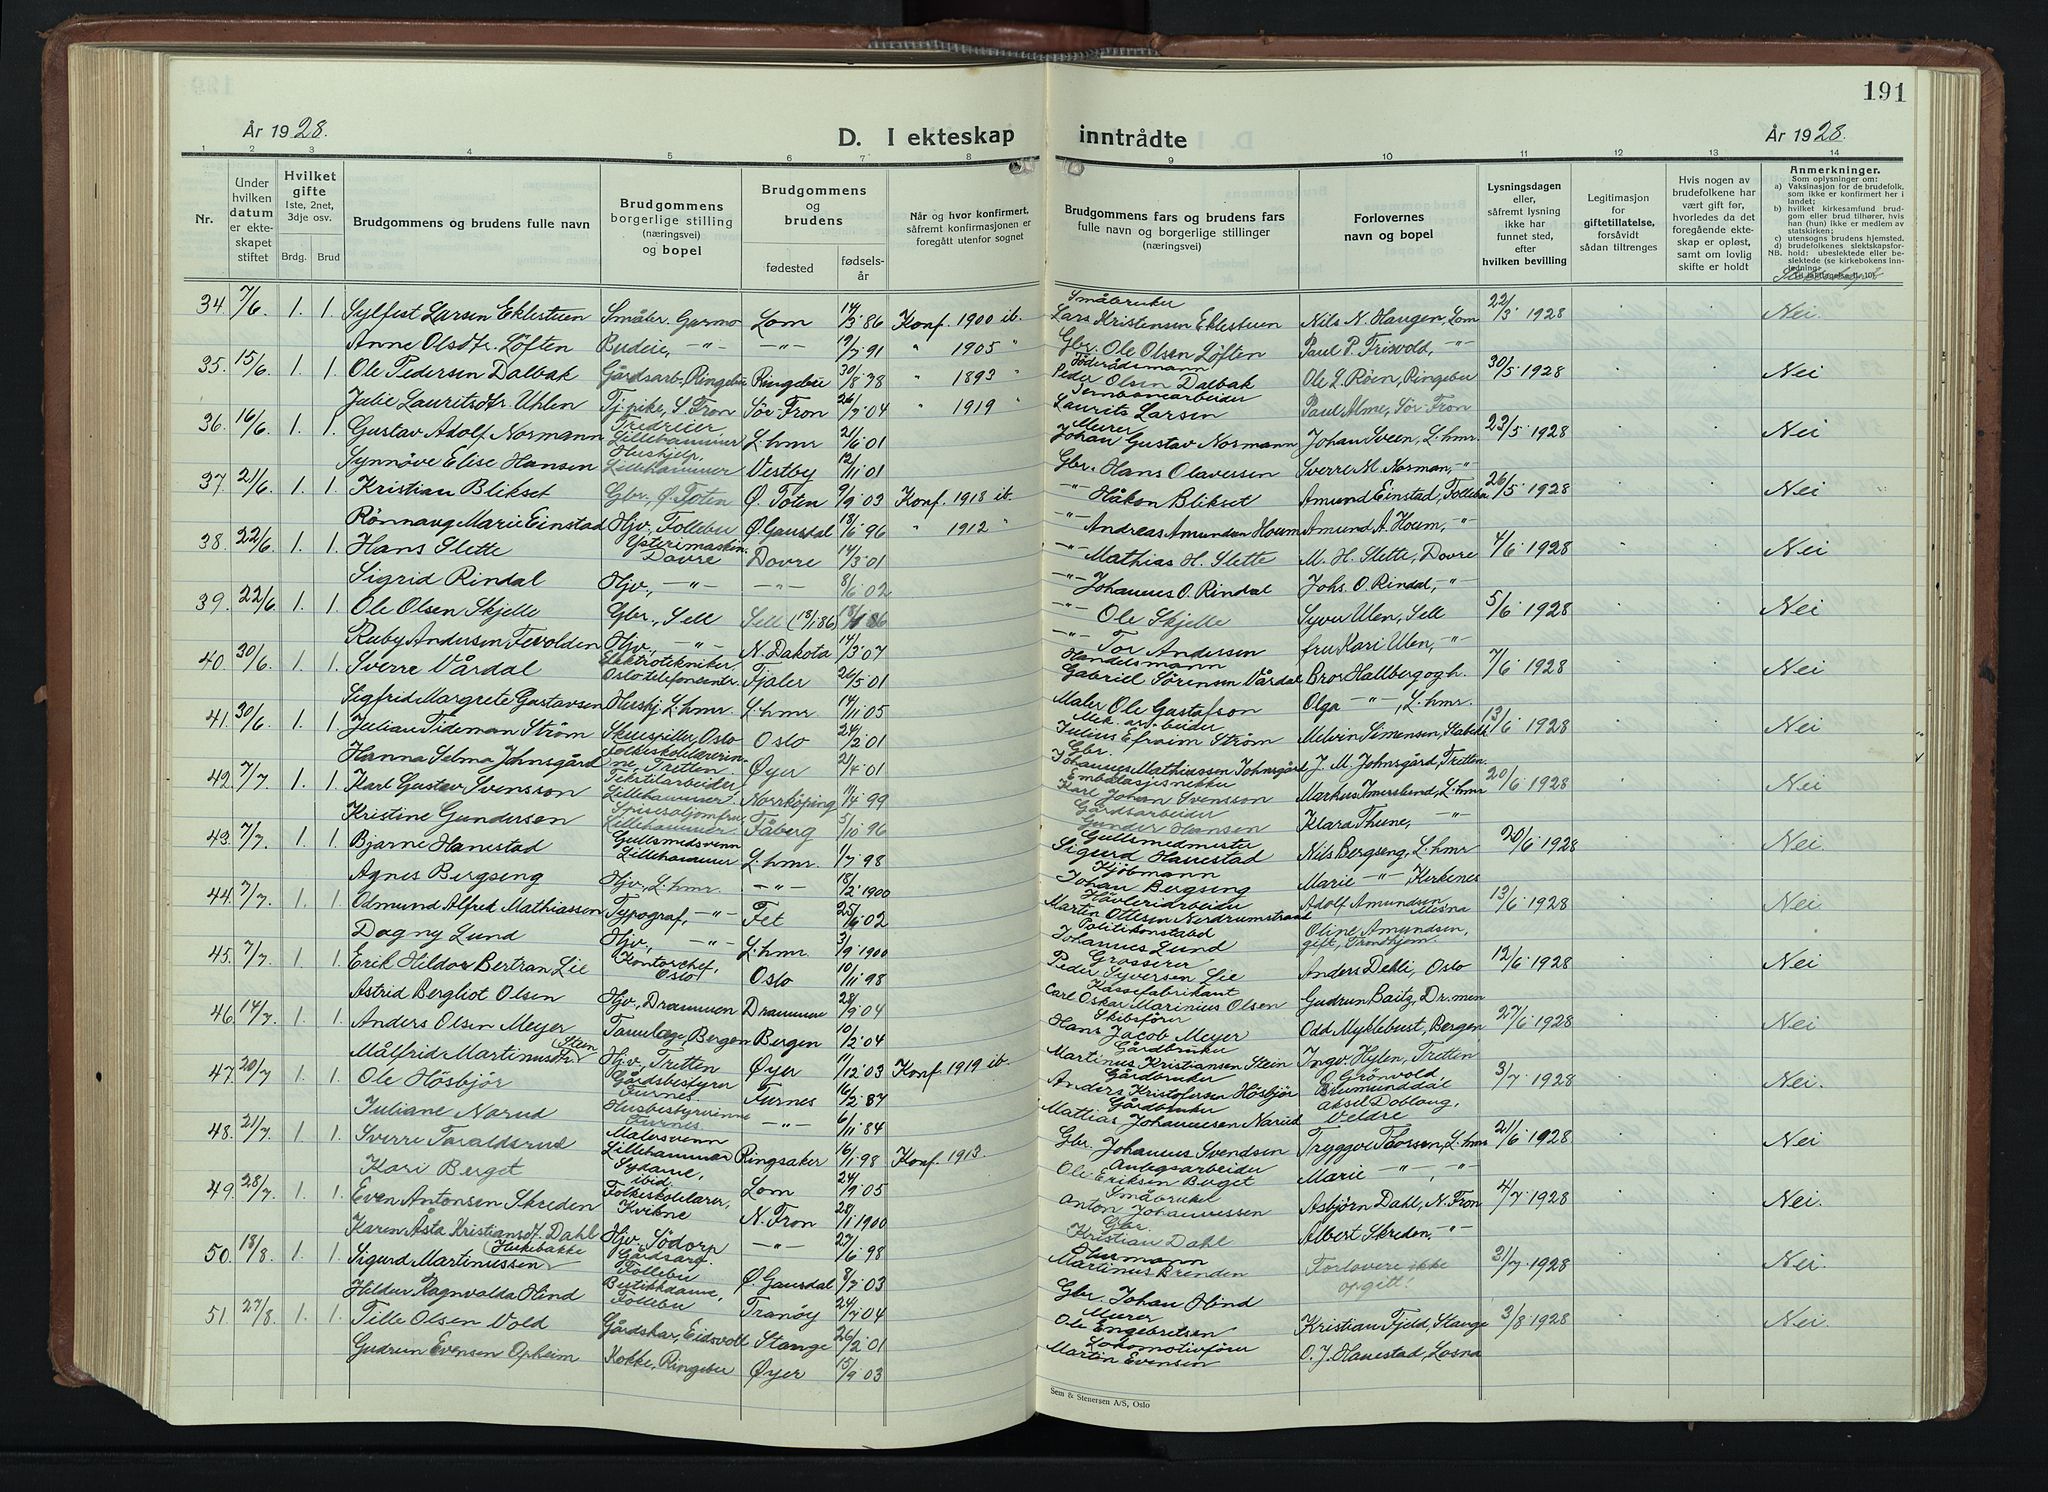 191
År 1928.
D. I ekteskap
inntrådte
År 1928.
1 2 3 4 5 6 7 8 9 10 11 12 13 14
Nr.
Under hvilken datum er ekteskapet stiftet
Hvilket gifte 1ste, 2net, 3dje osv.
Brdg. Brud
Brudgommens og brudens fulle navn
Brudgommens borgerlige stilling (næringsvei) og bopel
Brudgommens og brudens
fødested
fødselsår
Når og hvor konfirmert, såfremt konfirmasjonen er foregått utenfor sognet
Brudgommens fars og brudens fars fulle navn og borgerlige stillinger (næringsvei)
Forlovernes navn og bopel
Lysningsdagen eller, såfremt lysning ikke har funnet sted, efter hvilken bevilling
Legitimasjon for giftetillatelse, forsåvidt sådan tiltrenges
Hvis nogen av brudefolkene har vært gift før, hvorledes da det foregående ekteskap er opløst, samt om lovlig skifte er holdt
Anmerkninger.
Som oplysninger om:
a) Vaksinasjon for de brudefolk, som ikke er konfirmert her i landet;
b) hvilket kirkesamfund brudgom eller brud tilhører, hvis han (hun) ikke er medlem av statskirken;
c) utensogns brudens hjemsted.
d) brudefolkenes slektskapsforhold: ubeslektede eller beslektede (se kirkebokens innledning:
34. 7/6 1. 1. Sylfest Larsen Eklestuen Småbr. Garmo Lom 14/3 86 Konf. 1900 ib. Småbruker Lars Kristensen Eklestuen Nils N. Haugen, Lom 22/5 1928 Nei
Anne Olsdtr. Løften Budeie, -"- -"- 19/7 91 " 1905 " Gbr. Ole Olsen Løften Paul P. Frisvold, -"-
35. 15/6 1. 1 Ole Pedersen Dalbak Gårdsarb., Ringebu Ringebu 30/8 78 " 1893 " Föderådsmann Peder Olsen Dalbak Ole L. Röen, Ringebu 30/5 1928 Nei
Julie Lauritsdtr. Uhlen Tj.pike, S. Fron Sör Fron 26/7 04 " 1919 " Jernbanearbeider Laurits Larsen Paul Alme, Sör Fron
36. 16/6 1. 1. Gustav Adolf Normann Tredreier Lillehammer L.hmr 21/6 01 Meier Johan Gustav Normann Johan Sveen, L.hmr. 22/5 1928 Nei
Synnöve Elise Hansen Hushjelp, Lillehammer Vestby 12/11 01 Gbr. Hans Olavessen Sverre M. Norman, -"-
37. 21/6 1. 1 Kristian Blikset Gbr. Ø. Toten Ø. Toten 9/9 03 Konf. 1918 ib. -"- Håkon Blikset Amund Einstad, Follebu 26/5 1928 Nei
Rönnaug Marie Einstad Hjv. Follebu Ø. Gausdal 18/6 96 " 1912 " -"- Andreas Amundsen Houm Amund A. Houm, -"-
38. 22/6 1. 1 Hans Slette Ysterimaskin. Dovre Dovre 14/3 01 -"- Mathias H. Slette M. H. Slette, Dovre 4/6 1928 Nei
Sigrid Rindal Hjv., -"- -"- 8/6 02 -"- Johannes O. Rindal Johs. O. Rindal, -"-
39. 22/6 1. 1. Ole Olsen Skjelle Gbr., Sell Sell (13/1 86) -"- Ole Skjelle Syver Ulen, Sell 5/6 1928 Nei
Ruby Andersen Fevolden Hjv., -"- N. Dakota 14/3 07 -"- Tor Andersen fru Kari Ulen, -"-
40. 30/6 1. 1. Sverre Vårdal Elektrotekniker Oslo telefoncentr. Fjaler 20/5 01 Handelsmann Gabriel Sörensen Vårdal Bror Hallberg og h. 7/6 1928 Nei
Sigfrid Margrete Gustavsen Hushj. L.hmr. L.hmr. 14/11 05 Maler Ole Gustafson Olga -"-, L.hmr.
41. 30/6 1. 1. Julian Tideman Ström Skuespiller, Oslo Oslo 24/2 01 Mek. arbeider Julius Efraim Ström Melvin Simensen, Stabekk 13/6 1928 Nei
Hanna Selma Johnsgård Folkeskolelærerinne, Tretten. Øyer 21/4 01 Gbr. Johannes Mathiassen Johnsgård J. M. Johnsgård, Tretten
42. 7/7 1. 1. Karl Gustav Svensson Tekstilarbeider, Lillehammer Norrköping 11/4 99 Embalasjesnekker Karl Johan Svensson Markus Imerslund, L.hmr 20/6 1928 Nei
Kristine Gundersen Spisevoljomfru, Lillehammer Fåberg 5/10 96 Gårdsarbeider Gunder Hansen Klara Thune, -"-
43. 7/7 1. 1. Bjarne Hanestad Gullsmedsvenn Lillehammer L.hmr. 1/7 98 Gullsmedmester Sigurd Hanestad Nils Bergseng, L.hmr 20/6 1928 Nei
Agnes Bergseng Hjv., L.hmr. -"- 18/2 1900 Kjöbmann Johan Bergseng Marie -"- Kirkenes
44. 7/7 1. 1. Odmund Alfred Mathiassen Typograf, -"- Fet 25/6 02 Hövleriarbeider Martin Ottesen Nerdrumstrand Adolf Amundsen Mesna 13/6 1928 Nei
Dagny Lund Hjv., -"- L.hmr. 3/9 1900 Politikonstabel Johannes Lund Oline Amundsen, gift, Trondhjem.
45. 7/7 1. 1. Erik Hildor Bertran Lie Kontorchef, Oslo Oslo 10/11 98 Grosserer Peder Syversen Lie Anders Dehli, Oslo 12/6 1928 Nei
Astrid Bergliot Olsen Hjv., Drammen Drammen 28/9 04 Kassefabrikant Carl Oskar Marinius Olsen Gudrun Baitz, Dr.men
46. 14/7 1. 1. Anders Olsen Meyer Tannlæge, Bergen Bergen 10/2 04 Skibsförer Hans Jacob Meyer Odd Myklebust, Bergen 27/6 1928 Nei
Målfrid Martinusdtr. (Steen) Hjv., Tretten Øyer 11/12 03 Konf. 1919 ib. Gårdbruker Martinus Kristiansen Stein Ingv. Hylen, Tretten
47. 20/7 1. 1. Ole Hösbjör Gårdsbestyrer Furnes. Furnes 16/2 87 Gårdbruker Anders Kristofersen Hösbjör O. Grönvold, Brumunddal 3/7 1928 Nei.
Juliane Narud Husbestyrerinne Furnes -"- 6/11 84 Gårdbruker Mattias Johannesen Narud Aksel Dobloug, Veldre
48. 21/7 1. 1. Sverre Tavaldsrud Malersvenn Lillehammer Ringsaker 16/1 98 Konf. 1913. Gbr. Johannes Svendsen Tryggve Thorsen, L.hmr 21/6 1928 Nei
Kari Berget Sydame, ibid. Lom 24/9 05 Anlegsarbeider Ole Eriksen Berget Marie -"-, -"-
49. 28/7 1. 1. Even Antonsen Skreden Folkeskolelærer, Kvikne N. Fron 28/1 1900 Småbruker Anton Johannessen Asbjörn Dahl, N. Fron 4/7 1928 Nei
Karen Åsta Kristiansdt. Dahl Hjv. Södorp -"- 27/6 98 Gbr. Kristian Dahl Albert Skreden, -"-
50. 18/8 1. 1 Sigurd Martinussen (Huskebakke) Gårdsarb. Follebu Ø. Gausdal 8/7 03 Martinus Brenden Forlovere ikke opgitt! 31/7 1928 Nei.
Hildur Ragnvalda Hind Butikkdame, Follebu Tranöy 24/7 04 Gbr. Johan Hind
51. 27/8 1. 1 Tille Olsen Vold Gårdskar, Eidsvoll Stange 26/2 01 Meier Ole Engebretsen Kristian Fjeld, Stange 3/8 1928 Nei.
Gudrun Evensen Opheim Kokke, Ringebu Øyer 15/9 03 Lokomotivförer Martin Evensen O. J. Hanestad, Losna
Sem & Stenersen A/S, Oslo